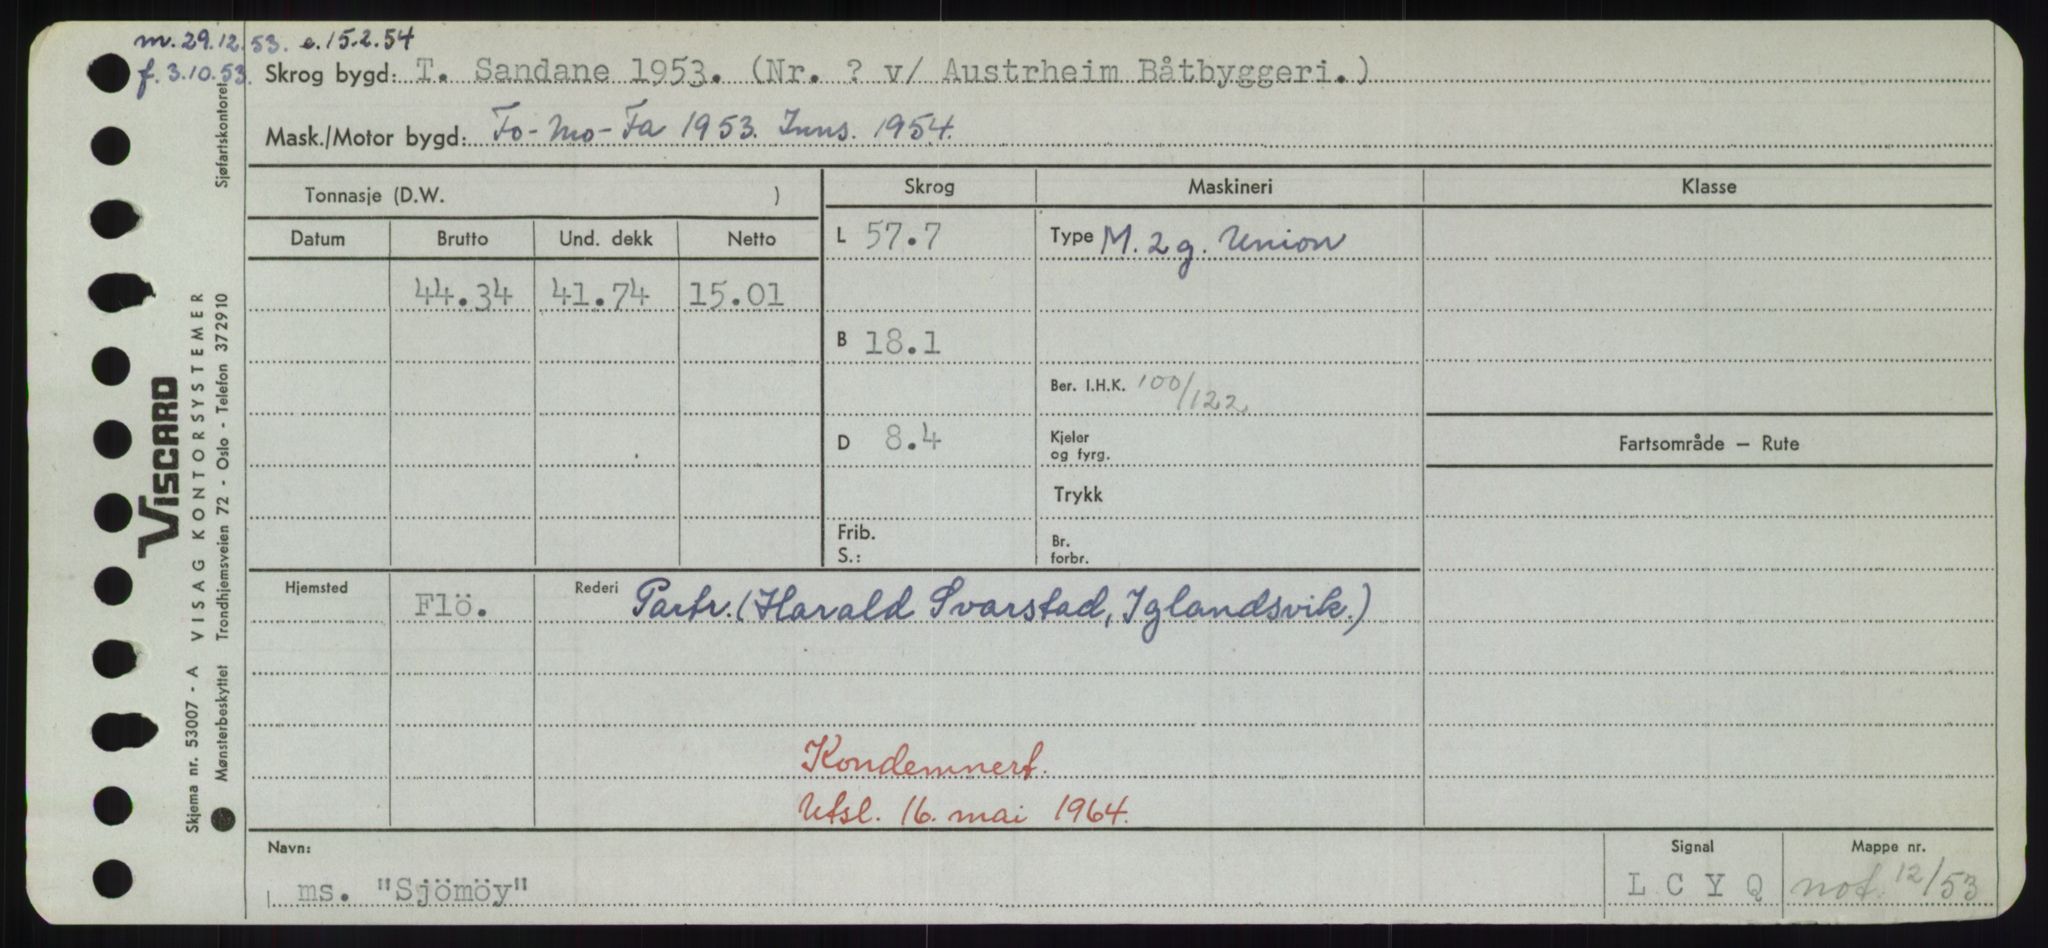 m. 29.12.53. e. 15.2.54
f. 3.10.53.
Skrog bygd: T. Sandane 1953. (Nr. ? v/ Austrheim Båtbyggeri.)
Mask./Motor bygd: Fo-Mo-Fa 1953. Inns. 1954.
Tonnasje (D.W. )
Skrog Maskineri Klasse
Datum Brutto Und. dekk Netto
L 57.7 Type M. 2 g. Union
44.34 41.74 15.01
B 18.1
Ber. I.H.K. 100/122
D 8.4 Kjeler
og fyrg.
Fartsområde — Rute
Trykk
Frib.
S.:
Br.
forbr.
Hjemsted Flö. Rederi Partr. (Harald Svarstad, Iglandsvik.)
Kondemnert.
Utsl. 16. mai 1964.
Navn: Signal Mappe nr.
ms. "Sjömöy" L C Y Q not. 12/53
Sjøfartskontoret
VISCARD
VISAG KONTORSYSTEMER
Trondhjemsveien 72 - Oslo - Telefon 372910
Skjema nr. 53007 - A
Mønsterbeskyttet